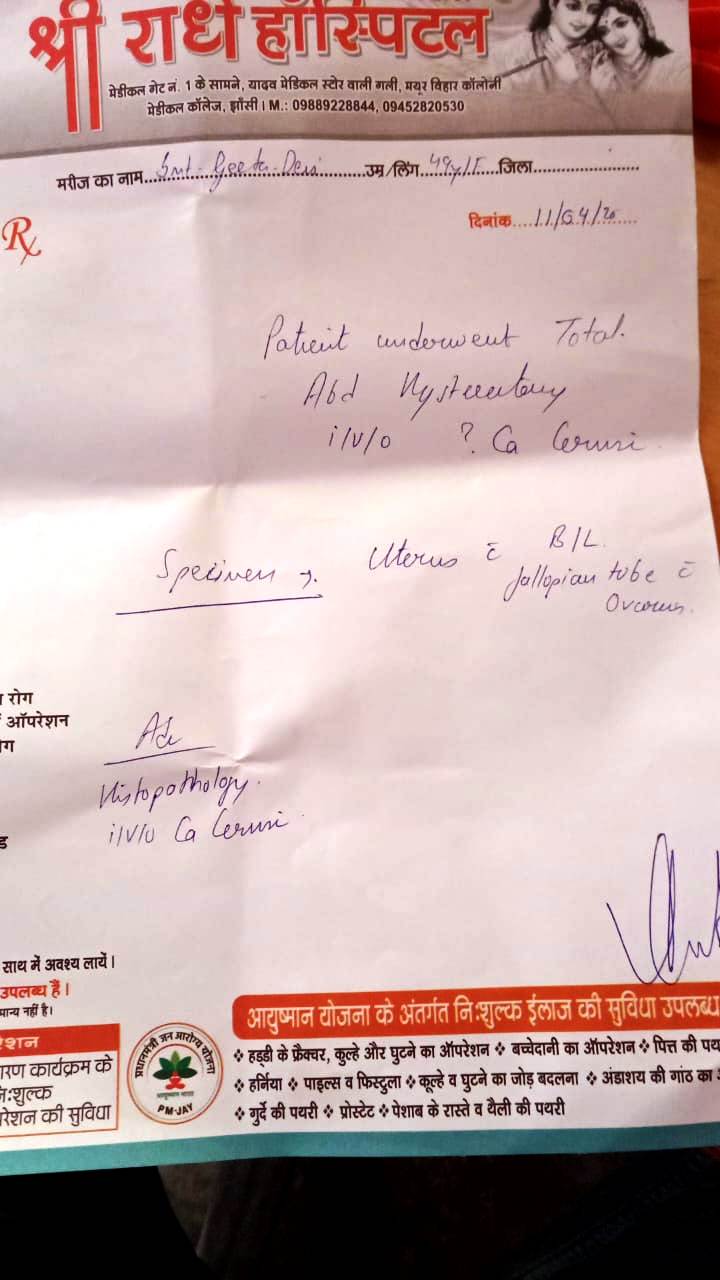 श्री राधे हॉस्पिटल
मेडीकल गेट नं. 1 के सामने, यादव मेडिकल स्टोर वाली गली, मयूर विहार कॉलोनी
मेडीकल कॉलेज, झाँसी। M.: 09889228844, 09452820530
मरीज का नाम Smt- Geeta Devi उम्र/लिंग 49y/F जिला
Rx
दिनांक 11/04/20
Patient underwent Total
Abd Hysterectomy
i/v/o ? Ca Cervix
Specimen → Uterus c̄ B/L
fallopian tube c̄
रोग
ऑपरेशन
Adv
Histopathology
i/v/o Ca Cervix
साथ में अवश्य लायें।
उपलब्ध हैं।
मान्य नहीं है।
आयुष्मान योजना के अंतर्गत निःशुल्क ईलाज की सुविधा उपलब्ध
रेशन
कार्यक्रम के
निःशुल्क
की सुविधा
प्रधानमंत्री जन आरोग्य योजना
आयुष्मान भारत
PM-JAY
❖ हड्डी के फ्रैक्चर, कुल्हे और घुटने का ऑपरेशन ❖ बच्चेदानी का ऑपरेशन ❖ पित्त की
❖ हर्निया ❖ पाइल्स व फिस्टुला ❖ कूल्हे व घुटने का जोड़ बदलना ❖ अंडाशय की गांठ का
❖ गुर्दे की पथरी ❖ प्रोस्टेट ❖ पेशाब के रास्ते व थैली की पथरी